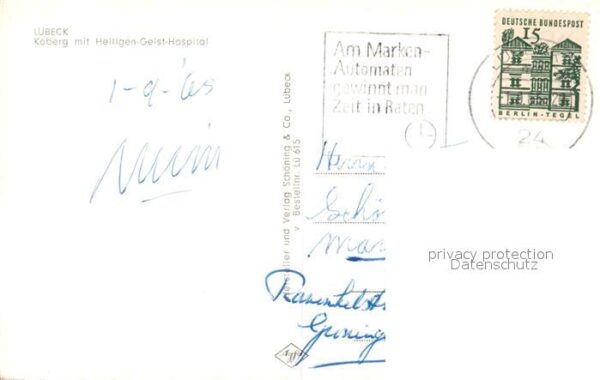 LÜBECK
Koberg mit Heiligen-Geist-Hospital
1-9-'65
Am Marken-
Automaten
gewinnt man
Zeit in Raten
DEUTSCHE BUNDESPOST
15
BERLIN-TEGEL
24
Hersteller und Verlag Schöning & Co., Lübeck
Bestellnr. Lü 615
Herrn
Schö
Mar
privacy protection
Datenschutz
Groning
Agfa